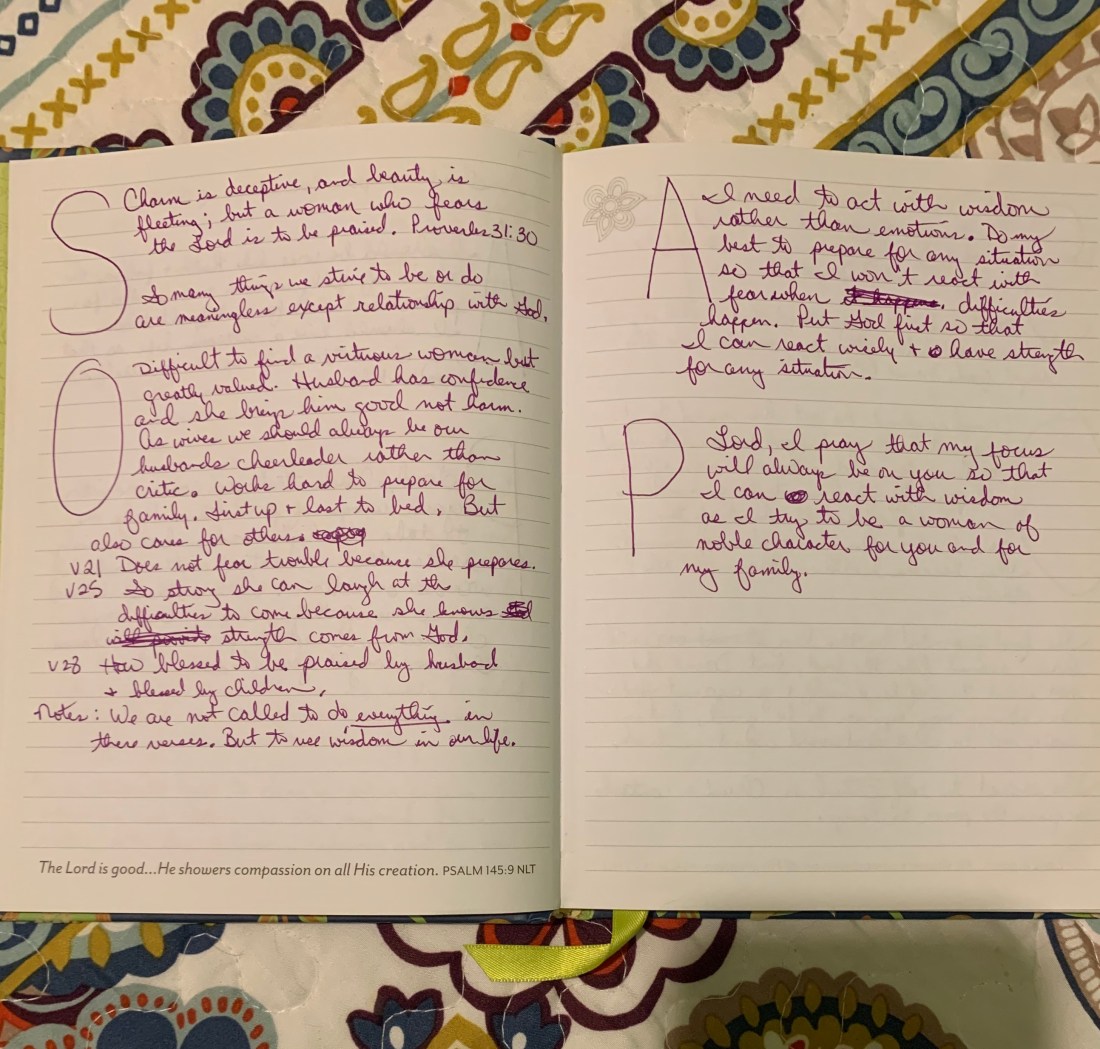 S
Charm is deceptive, and beauty is
fleeting; but a woman who fears
the Lord is to be praised. Proverbs 31:30
So many things we strive to be or do
are meaningless except relationship with God.
O
Difficult to find a virtuous woman but
greatly valued. Husband has confidence
and she brings him good not harm.
As wives we should always be our
husbands cheerleader rather than
critic. Works hard to prepare for
family. First up + last to bed. But
also cares for others.
V21 Does not fear trouble because she prepares.
V25 So strong she can laugh at the
difficulties to come because she knows
strength comes from God.
V28 How blessed to be praised by husband
+ blessed by children.
Notes: We are not called to do everything in
these verses. But to use wisdom in our life.
The Lord is good...He showers compassion on all His creation. PSALM 145:9 NLT
A
I need to act with wisdom
rather than emotions. Do my
best to prepare for any situation
so that I won't react with
fear when difficulties
happen. Put God first so that
I can react wisely + have strength
for any situation.
P
Lord, I pray that my focus
will always be on you so that
I can react with wisdom
as I try to be a woman of
noble character for you and for
my family.